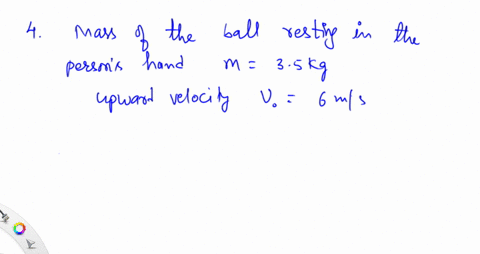 4. Mass of the ball resting in the
person's hand m = 3.5 kg
upward velocity V₀ = 6 m/s